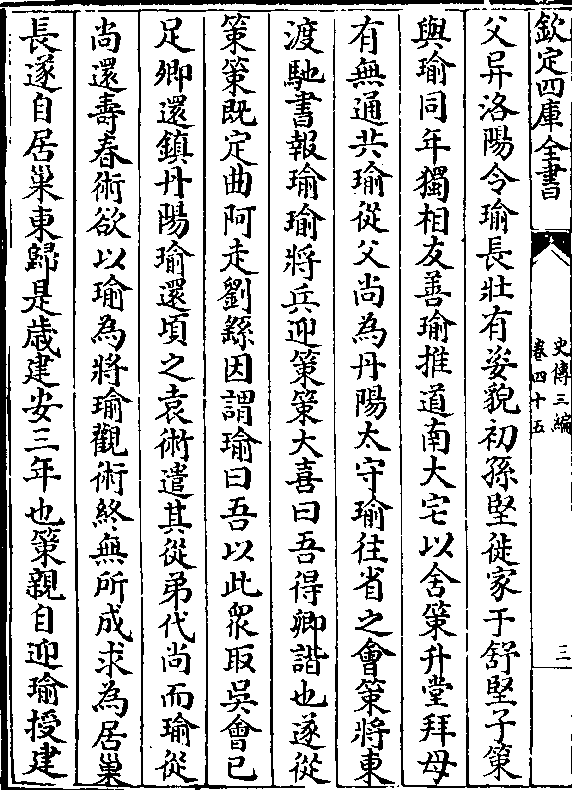 欽定四庫全書
史傳三編
卷四十五
三
父异洛陽令瑜長壯有姿貌初孫堅徙家于舒堅子策
與瑜同年獨相友善瑜推道南大宅以舍策升堂拜母
有無通共瑜從父尚為丹陽太守瑜往省之會策將東
渡馳書報瑜瑜將兵迎策策大喜曰吾得卿諧也遂從
策策既定曲阿走劉繇因謂瑜曰吾以此衆取吳會已
足卿還鎮丹陽瑜還頃之袁術遣其從弟代尚而瑜從
尚還壽春術欲以瑜為將瑜觀術終無所成求為居巢
長遂自居巢東歸是歲建安三年也策親自迎瑜授建